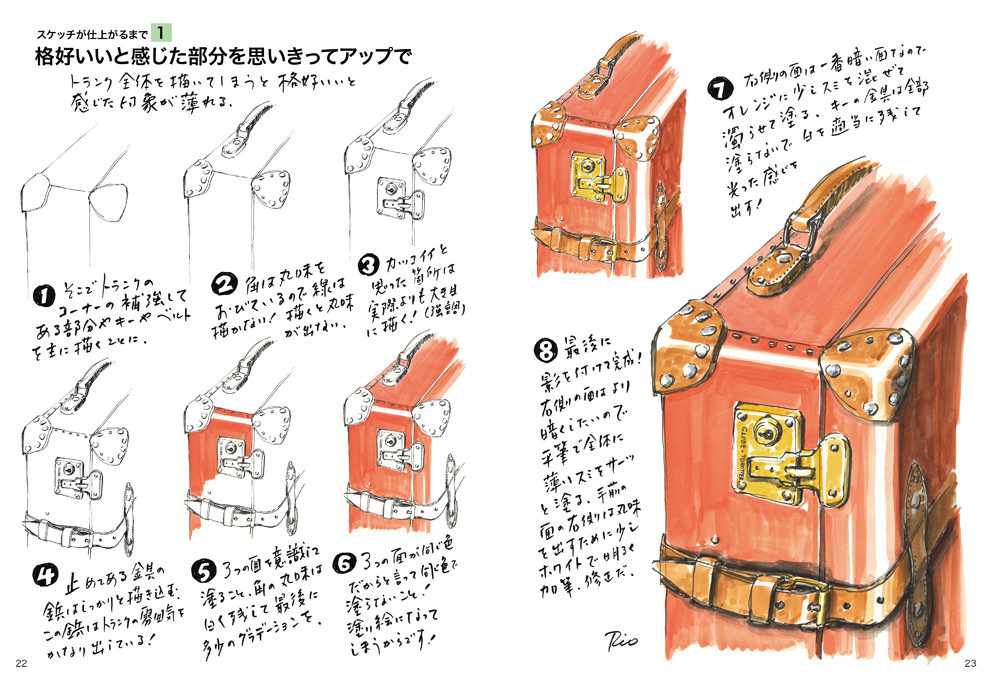 スケッチが仕上がるまで 1
格好いいと感じた部分を思いきってアップで
トランク全体を描いてしまうと格好いいと
感じた印象が薄れる。
1 そこでトランクの
コーナーの補強して
ある部分やキーやベルト
を主に描くことに。
2 角は丸味を
おびているので線は
描かない!描くと丸味
が出ない。
3 カッコイイと
思った箇所は
実際よりも大き目
に描く!(強調)
4 止めてある金具の
鋲はしっかりと描き込む。
この鋲はトランクの雰囲気を
かなり出している!
5 3つの面を意識して
塗ること。角の丸味は
白く残して最後に
多少のグラデーションを。
6 3つの面が同じ色
だからと言って同じ色で
塗らないこと!
塗り絵になって
しまうからです!
7 右側の面は一番暗い面なので
オレンジに少しスミを混ぜて
濁らせて塗る。キーの金具は全部
塗らないで白を適当に残して
光った感じを
出す!
8 最後に
影を付けて完成!
右側の面はより
暗くしたいので
平筆で全体に
薄いスミをサーッ
と塗る。手前の
面の右側は丸味
を出すために少し
ホワイトで明るく
加筆、修正だ。
GLOBE-TROTTER
Rio
22
23